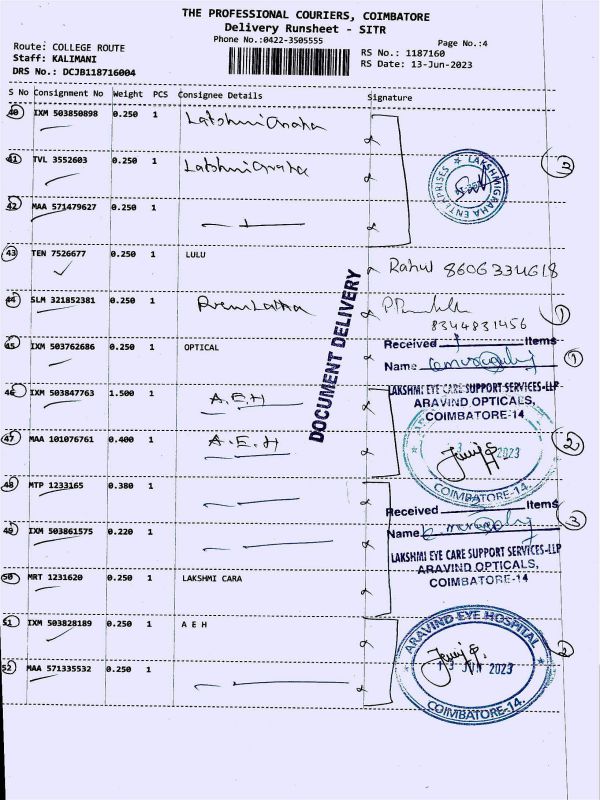 THE PROFESSIONAL COURIERS, COIMBATORE
Delivery Runsheet - SITR
Phone No.:0422-3505555
Page No.:4
Route: COLLEGE ROUTE
Staff: KALIMANI
DRS No.: DCJB118716004
RS No.: 1187160
RS Date: 13-Jun-2023
S No Consignment No Weight PCS Consignee Details Signature
40 IXM 503850898 0.250 1 Lakshmi Graha
41 TVL 3552603 0.250 1 Lakshmi Graha
LAKSHMIGRAHA ENTERPRISES
2
42 MAA 571479627 0.250 1
43 TEN 7526677 0.250 1 LULU Rahul 8606334618
44 SLM 321852381 0.250 1 PremLatha
8344831456
1
DOCUMENT DELIVERY
45 IXM 503762686 0.250 1 OPTICAL
Received 1 Items
Name
1
LAKSHMI EYE CARE SUPPORT SERVICES-LLP
ARAVIND OPTICALS,
COIMBATORE-14
46 IXM 503847763 1.500 1 A.E.H
47 MAA 101076761 0.400 1 A.E.H
2023
COIMBATORE-14.
2
48 MTP 1233165 0.380 1
Received Items
Name
3
49 IXM 503861575 0.220 1
LAKSHMI EYE CARE SUPPORT SERVICES-LLP
ARAVIND OPTICALS,
COIMBATORE-14
50 MRT 1231620 0.250 1 LAKSHMI CARA
51 IXM 503828189 0.250 1 A E H
ARAVIND EYE HOSPITAL
13 JUN 2023
COIMBATORE-14.
2
52 MAA 571335532 0.250 1